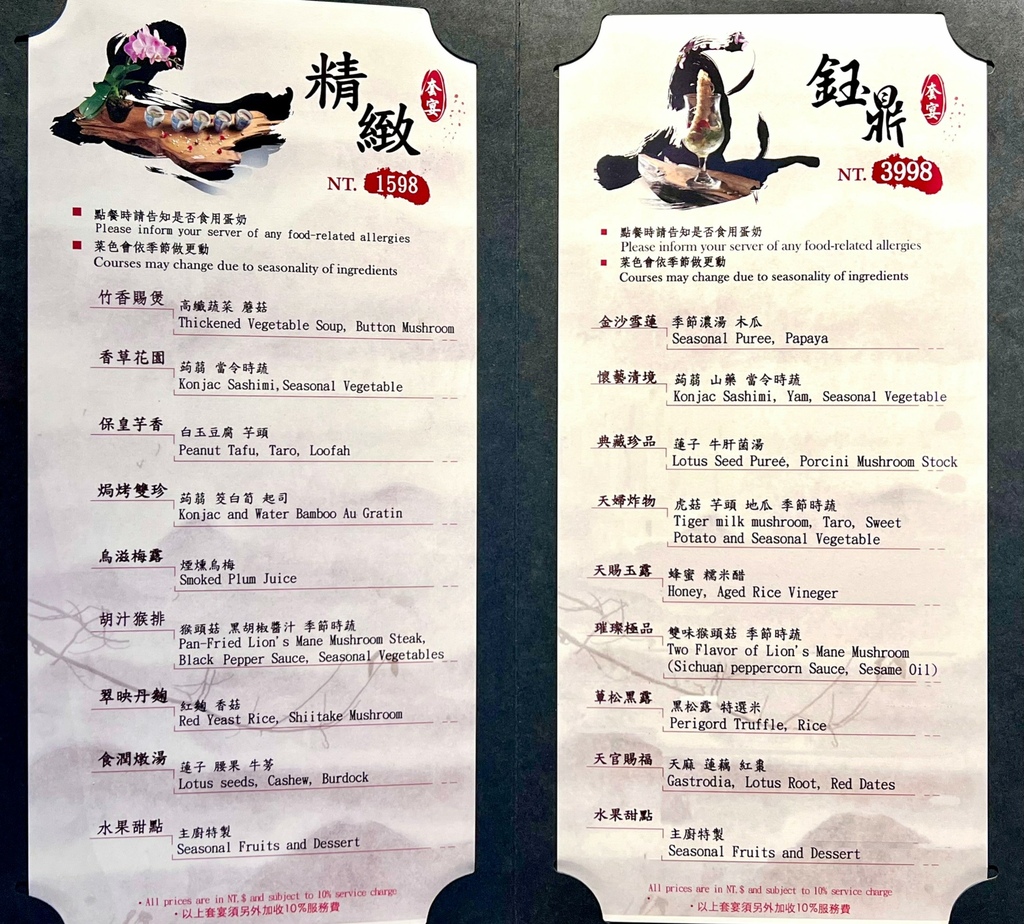 精緻
套宴
NT. 1598
點餐時請告知是否食用蛋奶
Please inform your server of any food-related allergies
菜色會依季節做更動
Courses may change due to seasonality of ingredients
竹香賜煲
高纖蔬菜 蘑菇
Thickened Vegetable Soup, Button Mushroom
香草花園
蒟蒻 當令時蔬
Konjac Sashimi, Seasonal Vegetable
保皇芋香
白玉豆腐 芋頭
Peanut Tafu, Taro, Loofah
焗烤雙珍
蒟蒻 茭白筍 起司
Konjac and Water Bamboo Au Gratin
烏滋梅露
煙燻烏梅
Smoked Plum Juice
胡汁猴排
猴頭菇 黑胡椒醬汁 季節時蔬
Pan-Fried Lion's Mane Mushroom Steak,
Black Pepper Sauce, Seasonal Vegetables
翠映丹麴
紅麴 香菇
Red Yeast Rice, Shiitake Mushroom
食潤燉湯
蓮子 腰果 牛蒡
Lotus seeds, Cashew, Burdock
水果甜點
主廚特製
Seasonal Fruits and Dessert
・All prices are in NT.$ and subject to 10% service charge
・以上套宴須另外加收10%服務費
鈺鼎
套宴
NT. 3998
點餐時請告知是否食用蛋奶
Please inform your server of any food-related allergies
菜色會依季節做更動
Courses may change due to seasonality of ingredients
金沙雪蓮
季節濃湯 木瓜
Seasonal Puree, Papaya
懷藝清境
蒟蒻 山藥 當令時蔬
Konjac Sashimi, Yam, Seasonal Vegetable
典藏珍品
蓮子 牛肝菌湯
Lotus Seed Pureé, Porcini Mushroom Stock
天婦炸物
虎菇 芋頭 地瓜 季節時蔬
Tiger milk mushroom, Taro, Sweet
Potato and Seasonal Vegetable
天賜玉露
蜂蜜 糯米醋
Honey, Aged Rice Vineger
璀璨極品
雙味猴頭菇 季節時蔬
Two Flavor of Lion's Mane Mushroom
(Sichuan peppercorn Sauce, Sesame Oil)
蕈松黑露
黑松露 特選米
Perigord Truffle, Rice
天官賜福
天麻 蓮藕 紅棗
Gastrodia, Lotus Root, Red Dates
水果甜點
主廚特製
Seasonal Fruits and Dessert
All prices are in NT.$ and subject to 10% service charge
・以上套宴須另外加收10%服務費